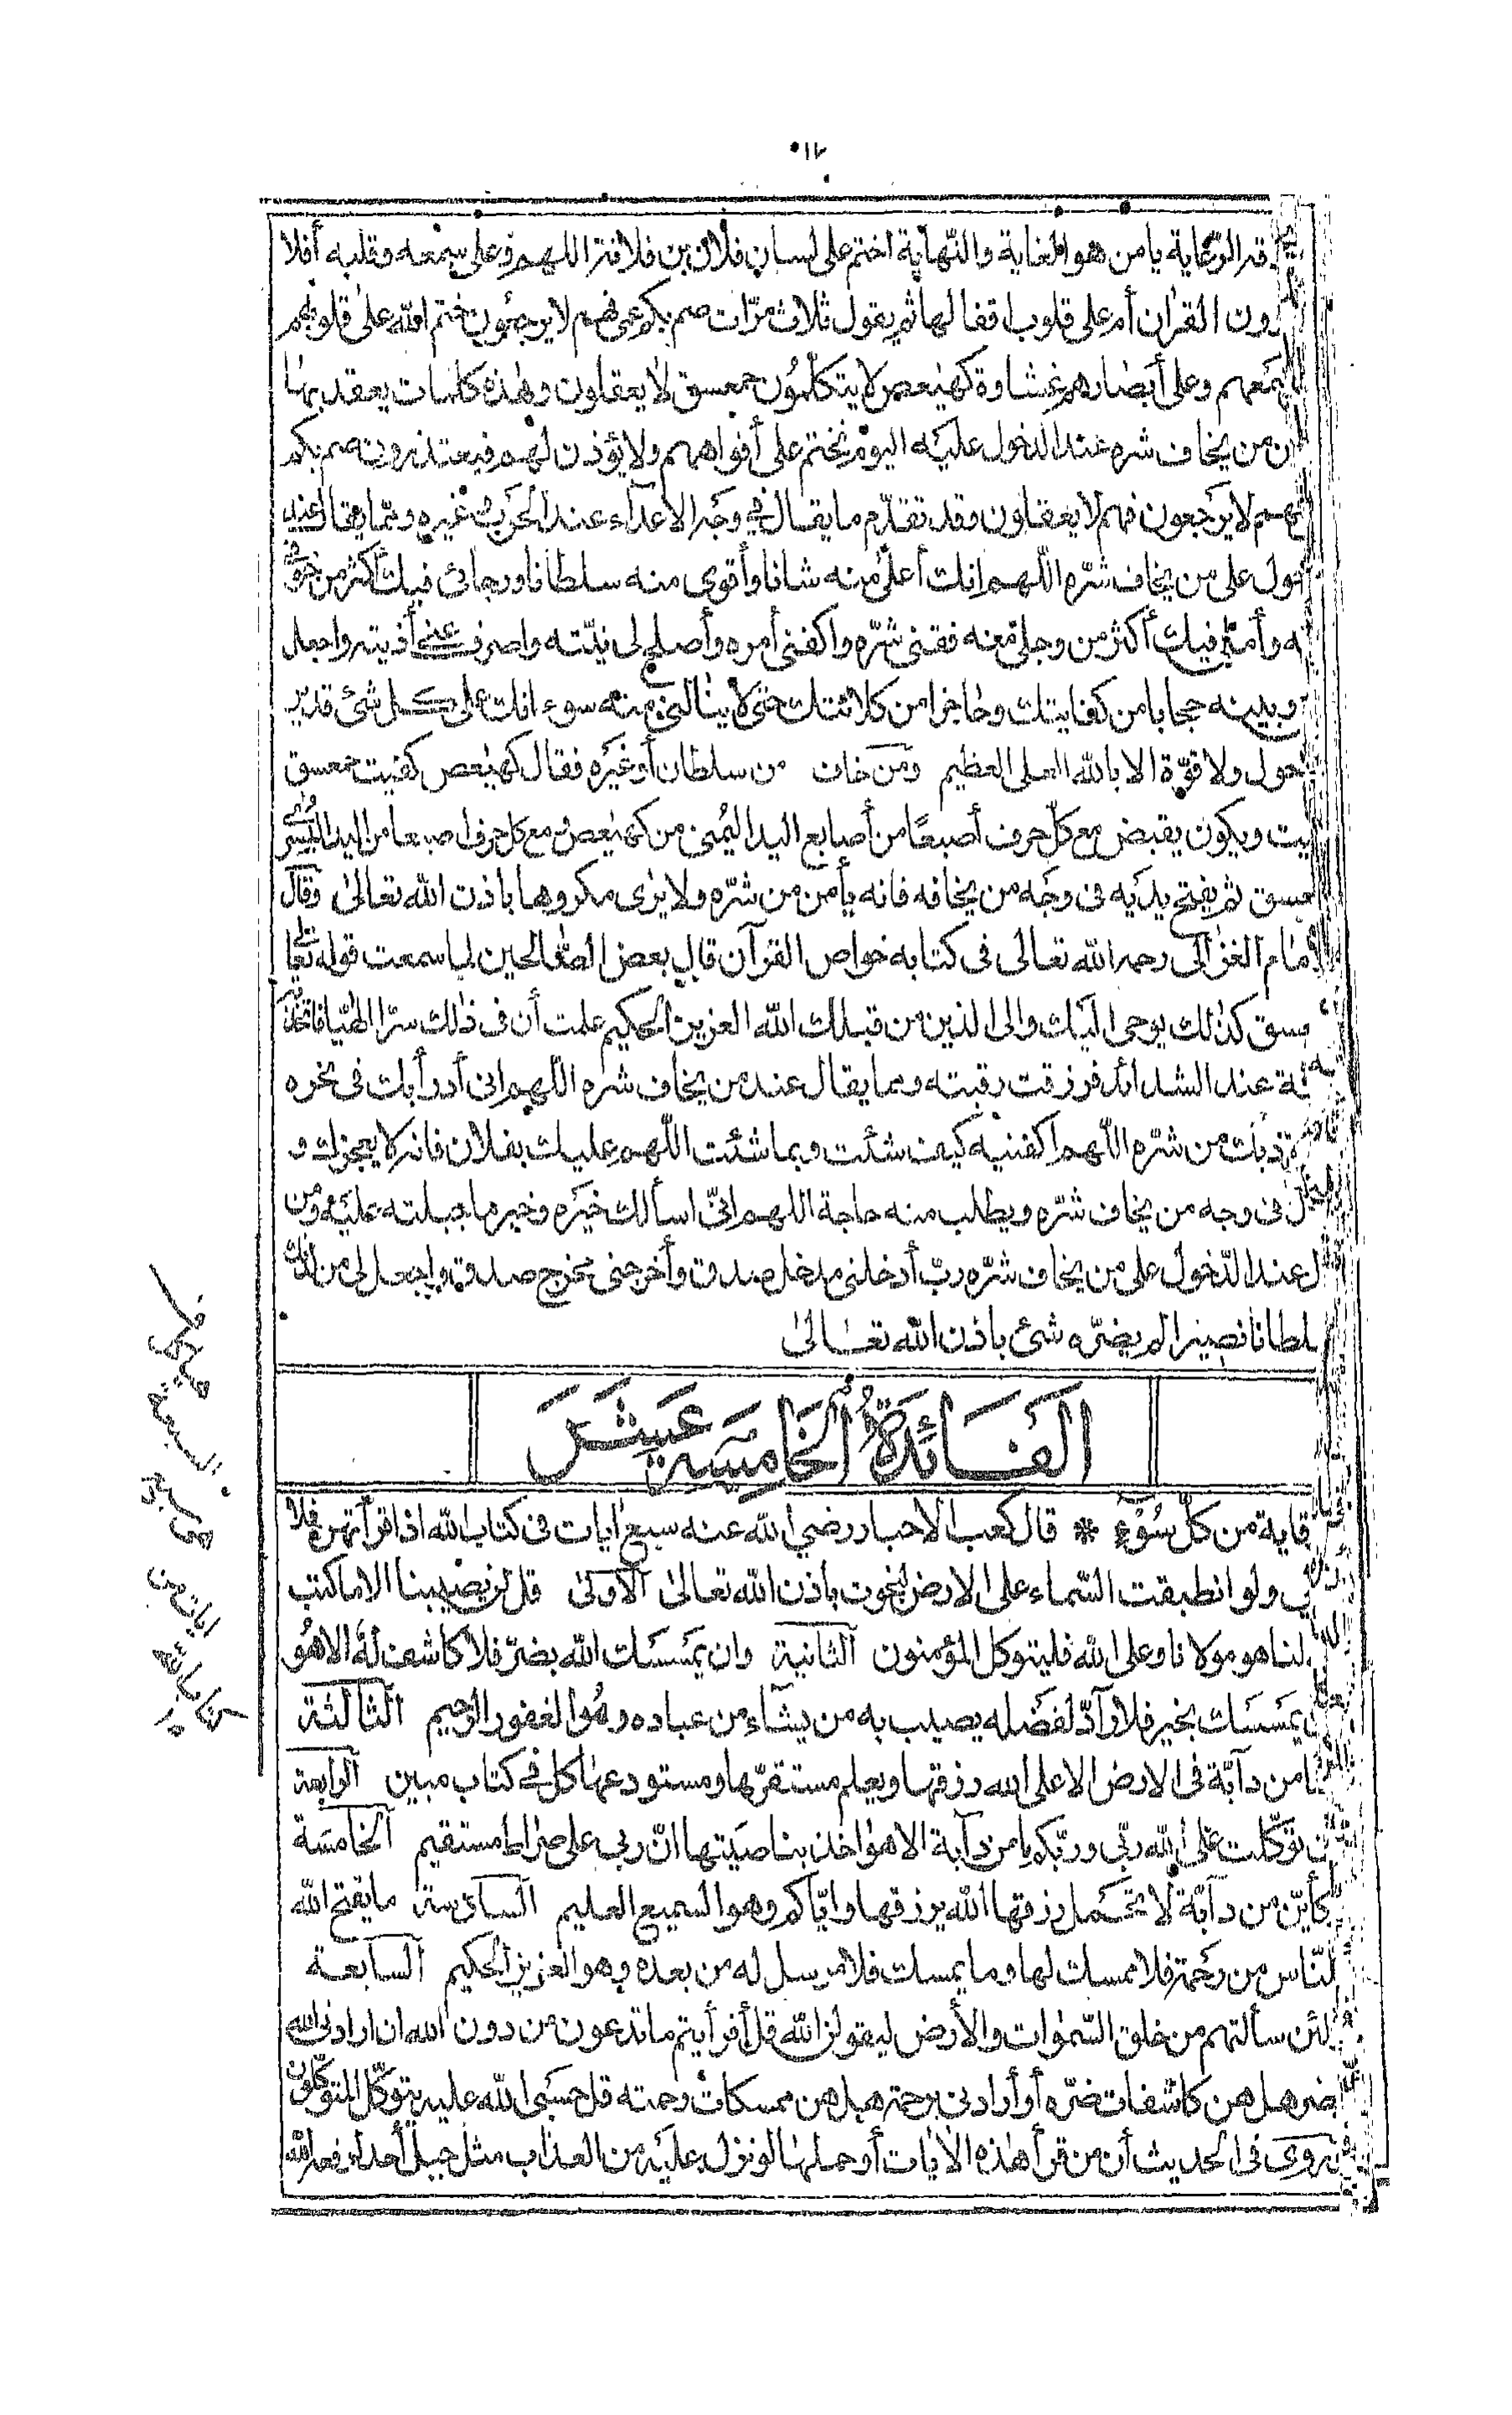 الرعاية يا من هو الغاية والنهاية اختم على لسان فلان بن فلانة اللهم وعلى سمعه وقلبه أفلا
القران أم على قلوب اقفالها ثم يقول ثلاث مرّات صم بكم عمى فهم لا يرجعون ختم الله على قلوبهم
وعلى أبصارهم غشاوة كهيعص لا يتكلّمون حمعسق لا يعقلون وهذه كلمات يعقد بها
من يخاف شره عند الدخول عليه اليوم نختم على أفواههم ولا يؤذن لهم فيعتذرون صم بكم
لا يرجعون فهم لا يعقلون وقد تقدّم ما يقال فى وجه الاعدآء عند الحرب وغيره وممّا يقال عند
على من يخاف شرّه اللّهم انك أعلى منه شانا وأقوى منه سلطانا ورجائى فيك أكثر من
وأملى فيك أكثر من وجلى منه فقنى شرّه واكفنى أمره وأصلح لى نيّته واصرف عنى أذيته واجعل
وبينه حجابا من كفايتك وحاجزا من كلائتك حتى لا ينالنى منه سوء انك على كل شئ قدير
حول ولا قوّة الا بالله العلى العظيم ومن خاف من سلطان أو غيره فقال كهيعص كفيت حمعسق
ويكون يقبض مع كل حرف أصبعًا من أصابع اليد اليمنى من كهيعص ومع كل حرف اصبعا من اليد اليسرى
ثم يفتح يديه فى وجه من يخافه فانه يأمن من شرّه ولا يرى مكروها باذن الله تعالى وقال
الغزالى رحمه الله تعالى فى كتابه خواص القرآن قال بعض الصّالحين لما سمعت قوله تعالى
كذلك يوحى اليك والى الذين من قبلك الله العزيز الحكيم علمت أن فى ذلك سرّا الهيّا
عند الشدائد فرزقت رقبته ومما يقال عند من يخاف شره اللّهم انى أدرأ بك فى نحره
من شرّه اللّهم اكفنيه كيف شئت وبما شئت اللّهم عليك بفلان فانه لا يعجزك و
فى وجه من يخاف شرّه ويطلب منه حاجة اللهم انّى اسألك خيره وخير ما جبلته عليه ومن
عند الدّخول على من يخاف شرّه ربّ أدخلنى مدخل صدق وأخرجنى مخرج صدق واجعل لى من لدنك
سلطانا نصيرا لم يضرّه شئ باذن الله تعالىٰ
الفَائِدَةُ الخَامِسَة عَشَرَ
من كلّ سُوْءٍ * قال كعب الاحبار رضي الله عنه سبع آيات فى كتاب الله اذا قرأتهن فلا
ولو انطبقت السّماء على الارض لنجوت باذن الله تعالىٰ الأولىٰ قل لن يصيبنا الا ما كتب
لنا هو مولانا وعلى الله فليتوكل المؤمنون الثانية وان يمسسك الله بضرّ فلا كاشف له الا هو
يمسسك بخير فلا رآدّ لفضله يصيب به من يشاء من عباده وهو الغفور الرحيم الثالثة
من دآبّة فى الارض الا على الله رزقها ويعلم مستقرّها ومستودعها كل فى كتاب مبين الرابعة
توكّلت على الله ربّى وربّكم ما من دآبة الا هو اخذ بناصيتها انّ ربى على صراط مستقيم الخامسَة
كأيّن من دآبّة لا تحمل رزقها الله يرزقها وايّاكم وهو السميع العليم السادسة ما يفتح الله
للنّاس من رحمة فلا ممسك لها وما يمسك فلا مرسل له من بعده وهو العزيز الحكيم السابعة
ولئن سألتهم من خلق السّموات والأرض ليقولن الله قل أفرأيتم ما تدعون من دون الله ان ارادنى الله
بضر هل هن كاشفات ضرّه أو أرادنى برحمة هل هن ممسكات رحمته قل حسبى الله عليه يتوكّل المتوكّلون
روى فى الحديث أن من قرأ هذه الايات أو حملها لو نزل عليه من العذاب مثل جبل أحد